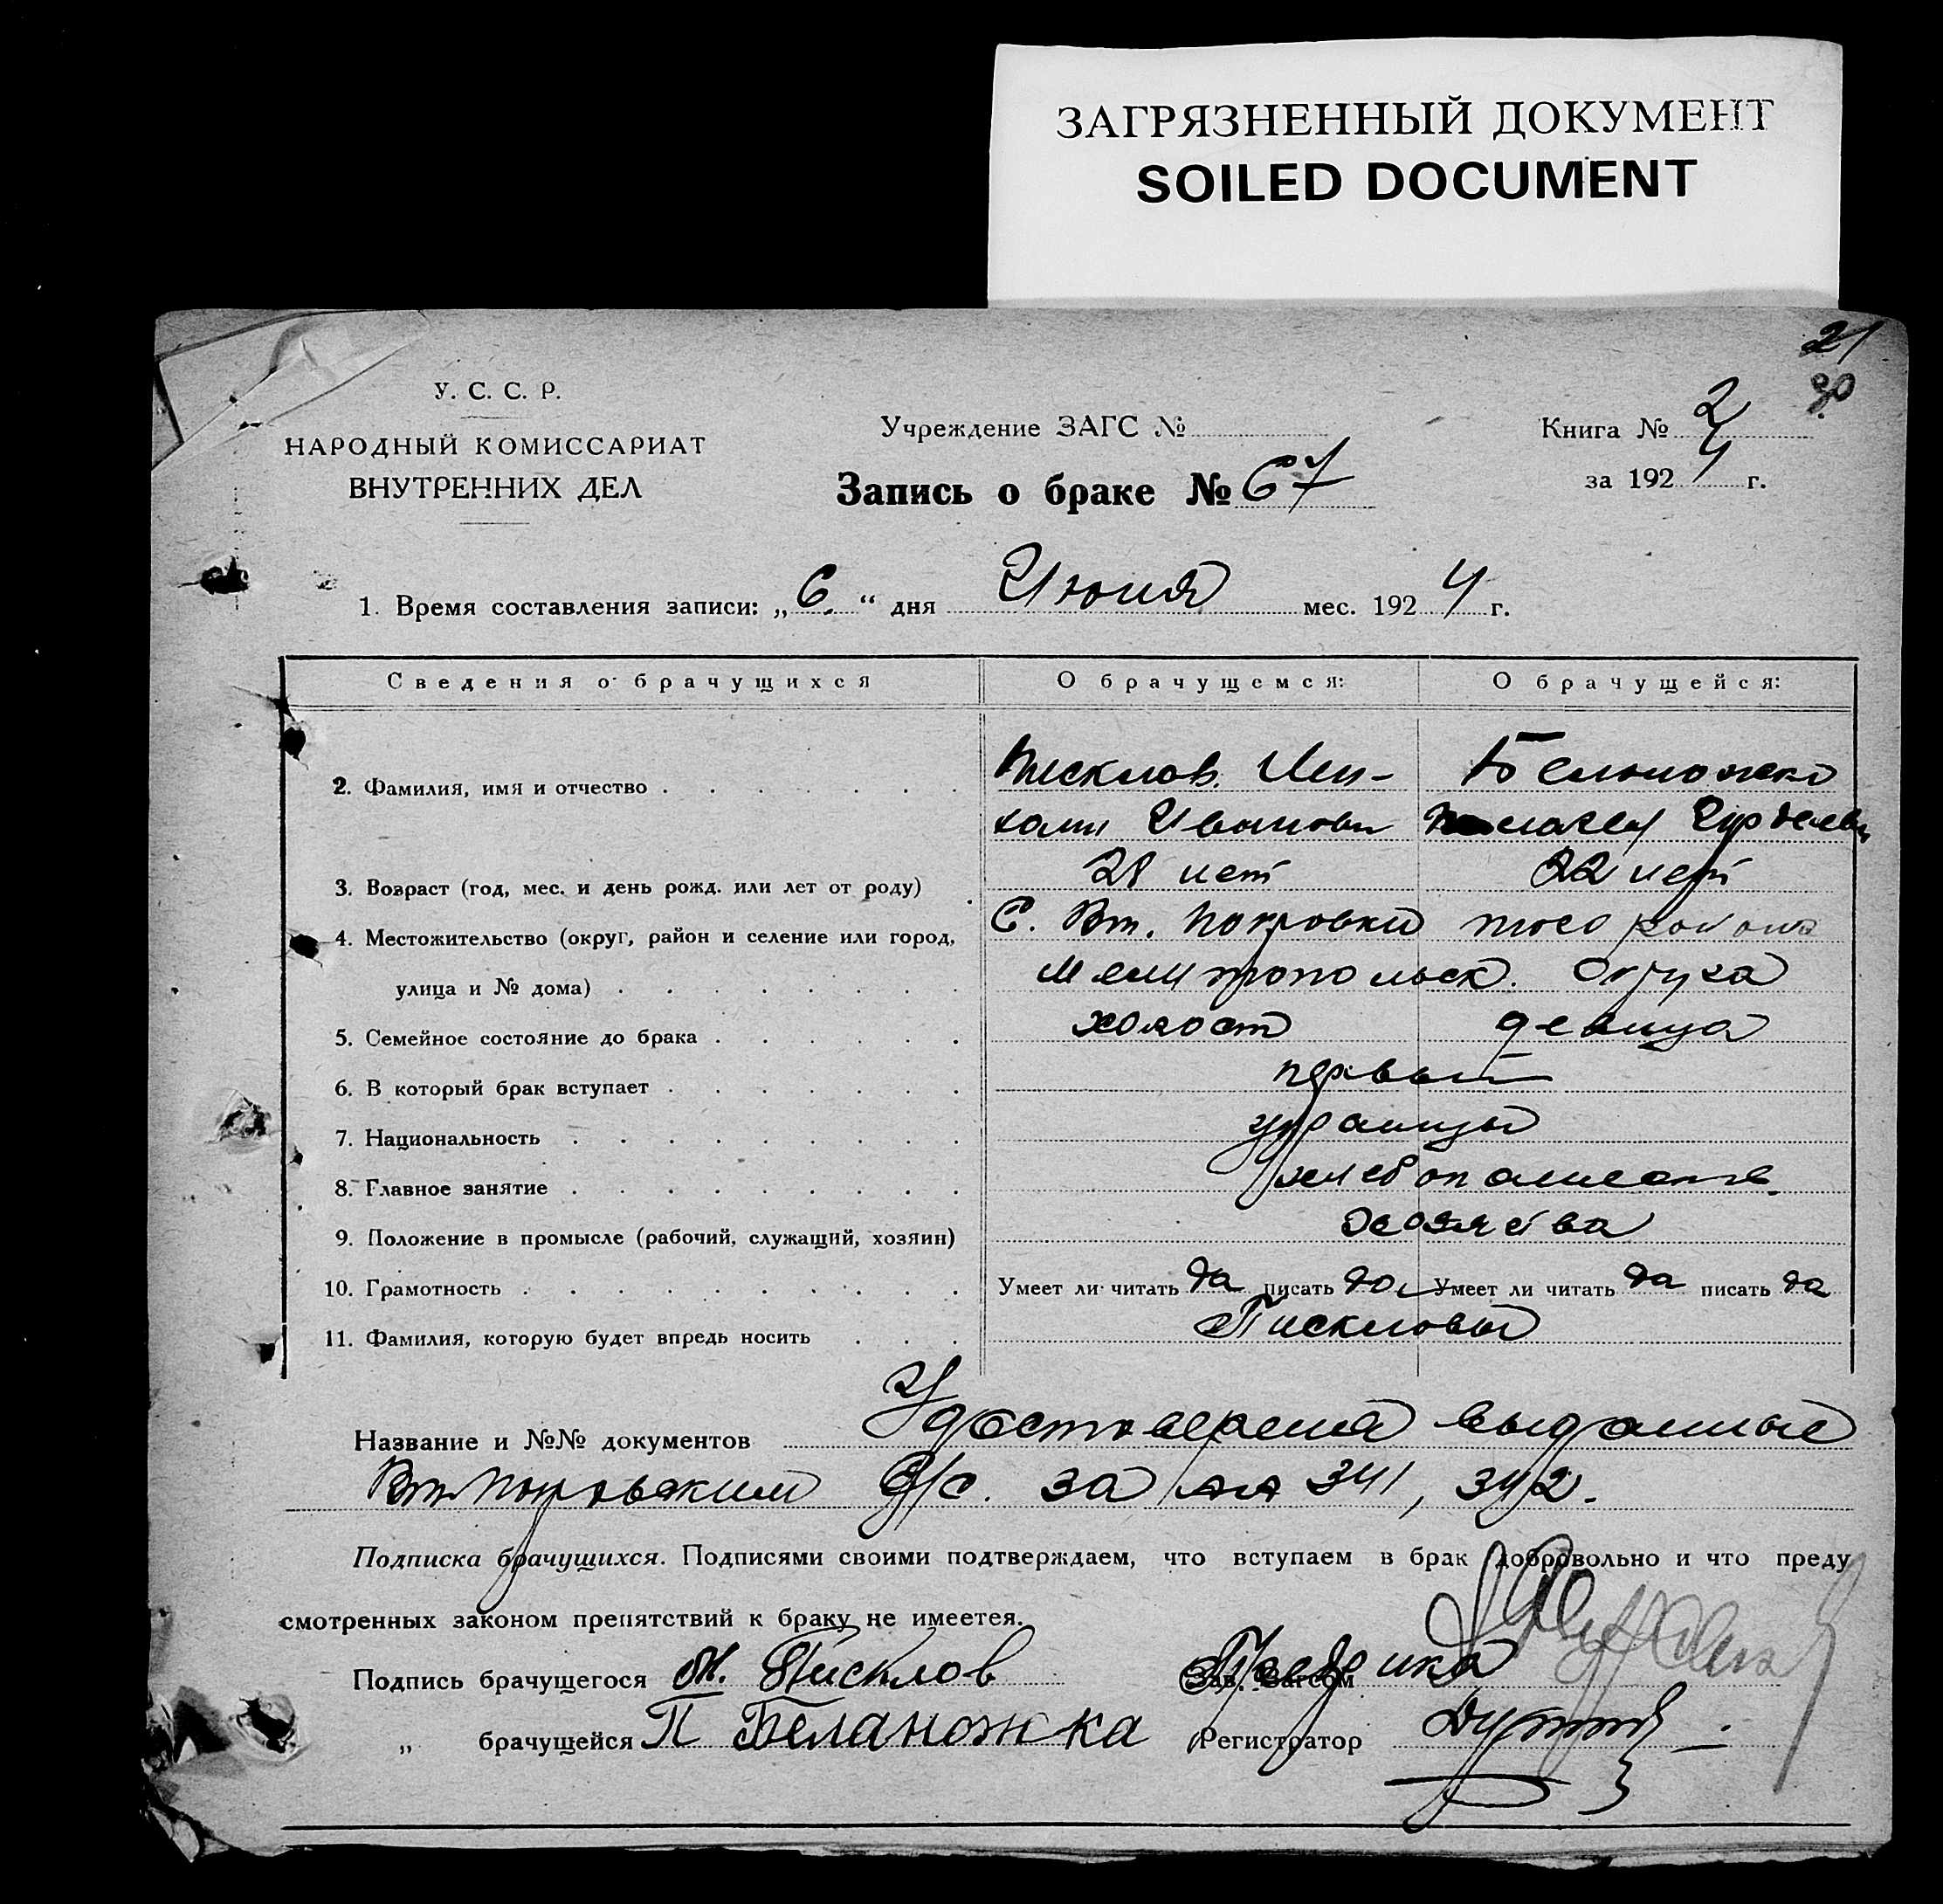 ЗАГРЯЗНЕННЫЙ ДОКУМЕНТ
SOILED DOCUMENT
21
30
У. С. С. Р.
НАРОДНЫЙ КОМИССАРИАТ
ВНУТРЕННИХ ДЕЛ
Учреждение ЗАГС №
Запись о браке № 67
Книга № 2
за 1924 г.
1. Время составления записи: „6.“ дня Июня мес. 1924 г.
Сведения о брачущихся
О брачущемся:
О брачущейся:
2. Фамилия, имя и отчество
Писклов
Белоножко
Иванови
3. Возраст (год, мес. и день рожд. или лет от роду)
28 лет
22 лет
4. Местожительство (округ, район и селение или город,
улица и № дома)
С. Вт. Покровки того района
Мелитопольск. Округа
5. Семейное состояние до брака
холост
девица
6. В который брак вступает
первый
7. Национальность
украинцы
8. Главное занятие
хлебопашеств.
9. Положение в промысле (рабочий, служащий, хозяин)
хозяева
10. Грамотность
Умеет ли читать да писать да
Умеет ли читать да писать да
11. Фамилия, которую будет впредь носить
Пискловы
Название и №№ документов Удостоверения выданные
Вт. Покровским с/с. за №№ 341, 342.
Подписка брачущихся. Подписями своими подтверждаем, что вступаем в брак добровольно и что преду
смотренных законом препятствий к браку не имеется.
Подпись брачущегося Писклов
Зав. Загсом
„ брачущейся П Беланожка
Регистратор